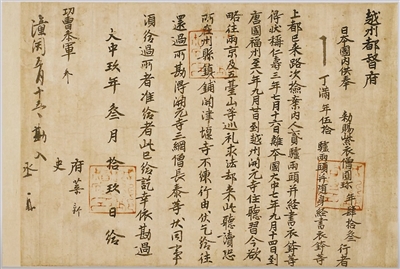 越州都督府
日本國内供奉 勅賜紫衣僧圓珍 年肆拾叁 行者
丁滿 年伍拾 驢兩頭并隨身經書衣鉢等
上都已來路次撿案内人貳驢兩頭并經書衣鉢等
得狀稱仁壽三年七月十六日離本國大中七年九月十四日到
唐國福州至八年九月廿日到越州開元寺住聽習今欲
略往兩京及五臺山等巡礼求法却来此聽讀恐
所在州縣鎮鋪関津堰寺不練行由伏乞給往
還過所勘得開元寺三綱僧長泰等狀同事
須給過所者准給者此已給訖幸依勘過
大中玖年叁月拾玖日給
府葉新
功曹參軍
史
潼関五月十五日勘入
丞